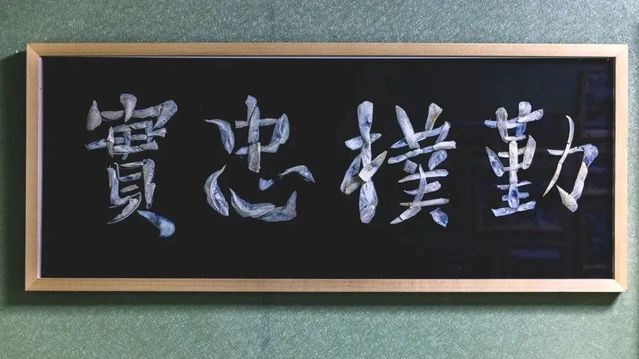 勤樸忠實